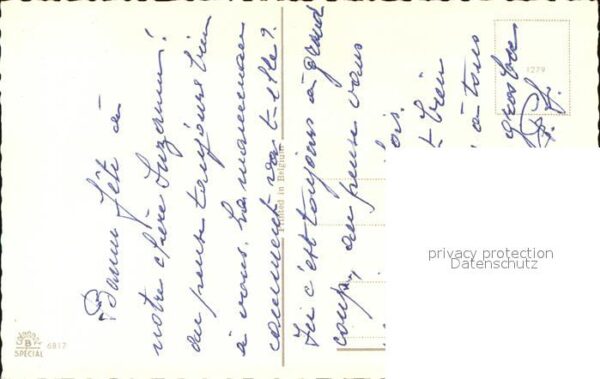 Bonne fête à
notre chère Suzanne!
on pense toujours bien
à vous. La maman
comment va-t-elle?
Ici c'est toujours à grand
coups, on pense vous
ois.
t bien
à tous
gros bec
P.f.
Printed in Belgium
1279
B
SPECIAL
6817
privacy protection
Datenschutz